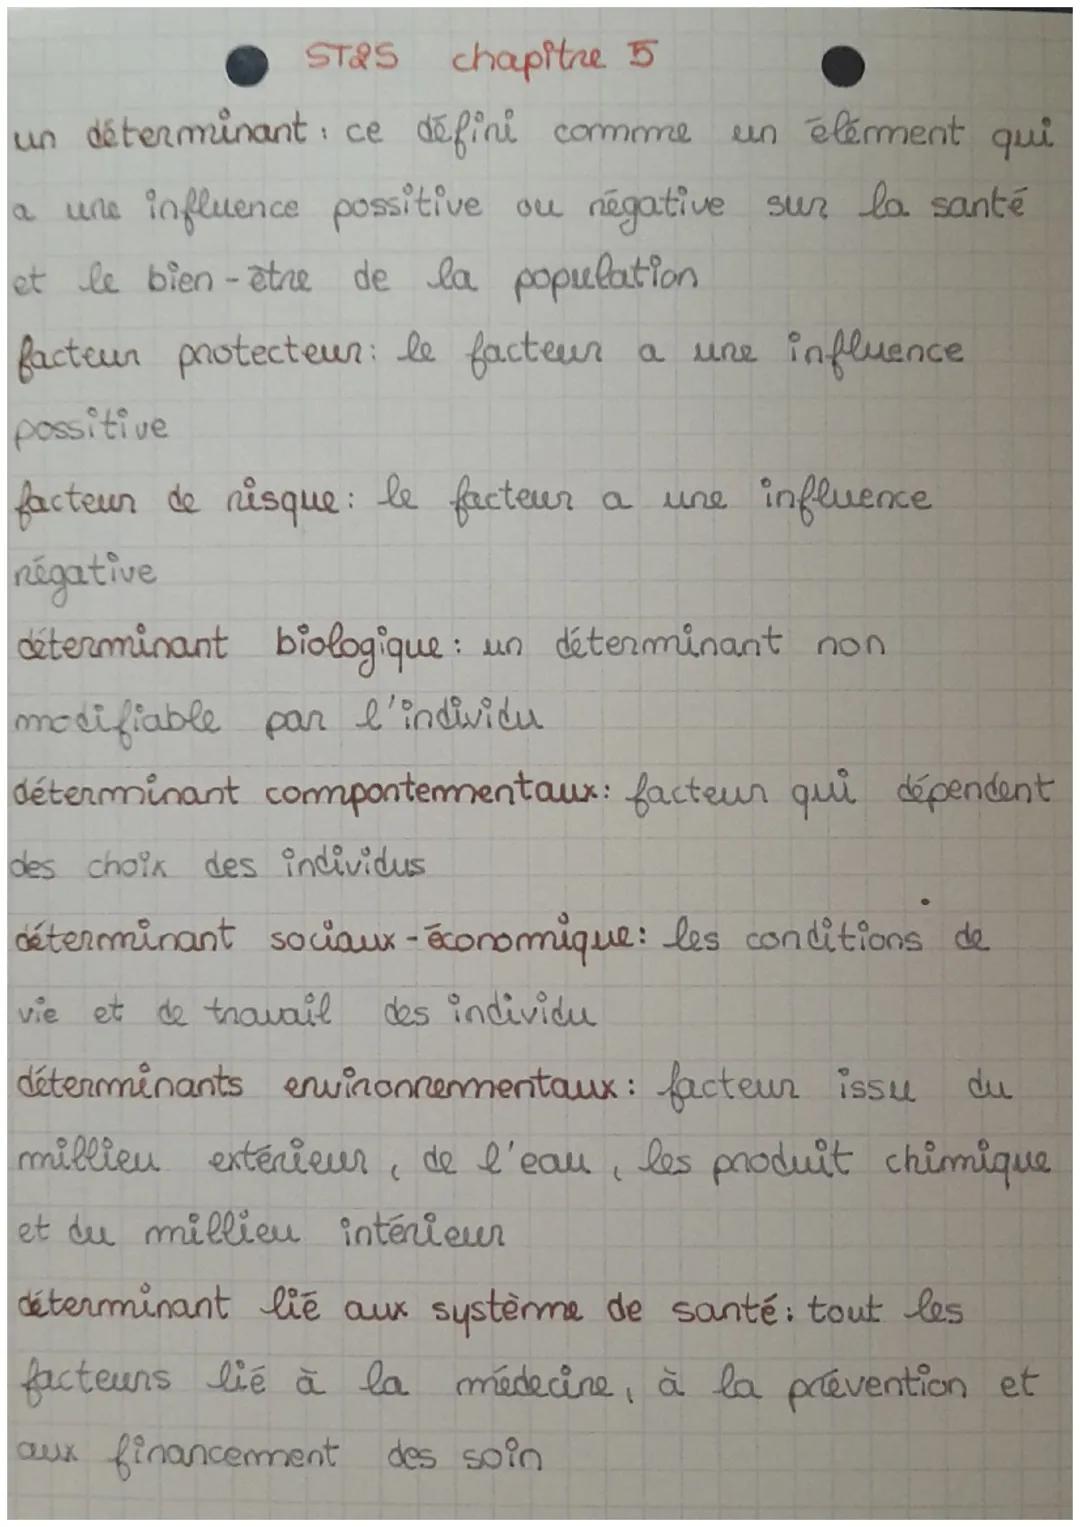 ST2S chapitre 5
un déterminant : ce défini comme un élément qui
a une influence possitive ou négative sur la santé
et le bien-être de la population
facteur protecteur : le facteur a une influence
possitive
facteur de risque : le facteur a une influence
négative
déterminant biologique : un déterminant non
modifiable par l'individu
déterminant comportementaux : facteur qui dépendent
des choix des individus
déterminant sociaux-économique : les conditions de
vie et de travail des individu
déterminants environnementaux : facteur issu du
millieu extérieur, de l'eau, les produit chimique
et du millieu intérieur
déterminant lié aux système de santé : tout les
facteurs lié à la médecine, à la prévention et
aux financement des soin